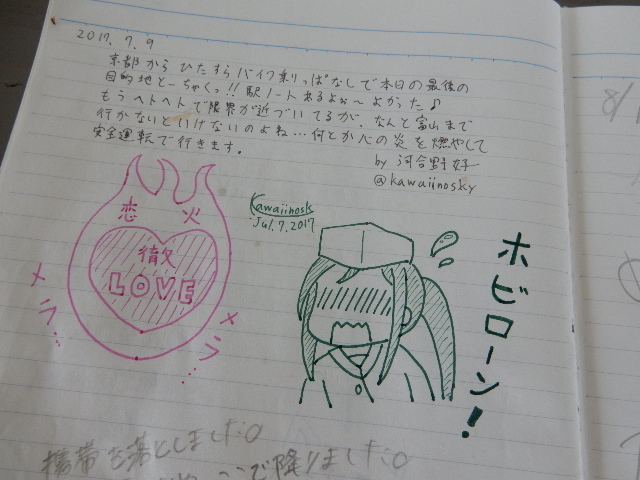 2017. 7. 9
京都から ひたすら バイク乗りっぱなしで本日の最後の
目的地とーちゃくっ!! 駅ノートあるよぉ〜よかった♪
もうヘトヘトで限界が近づいてるが、なんと富山まで
行かないといけないのよね…何とか心の炎を燃やして
安全運転で行きます。
by 河合野好
@kawaiinosky
恋 火
徹
LOVE
メラ…
メラ…
Kawaiinosk
Jul.7.2017
ホビローン!
携帯を落としました。
ここで降りました。